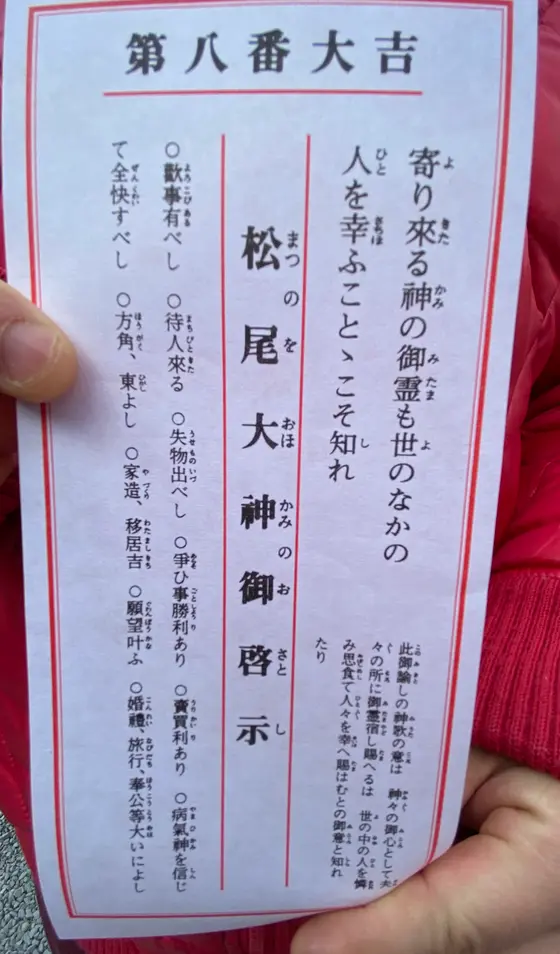 第八番大吉
寄り來る神の御霊も世のなかの
人を幸ふことゝこそ知れ
此御諭しの神歌の意は 神々の御心として夫
々の所に御霊宿し賜へるは 世の中の人を憐
み思食て人々を幸へ賜はむとの御意と知れ
たり
松尾大神御啓示
○歡事有べし ○待人來る ○失物出べし ○爭ひ事勝利あり ○賣買利あり ○病氣神を信じ
て全快すべし ○方角、東よし ○家造、移居吉 ○願望叶ふ ○婚禮、旅行、奉公等大いによし